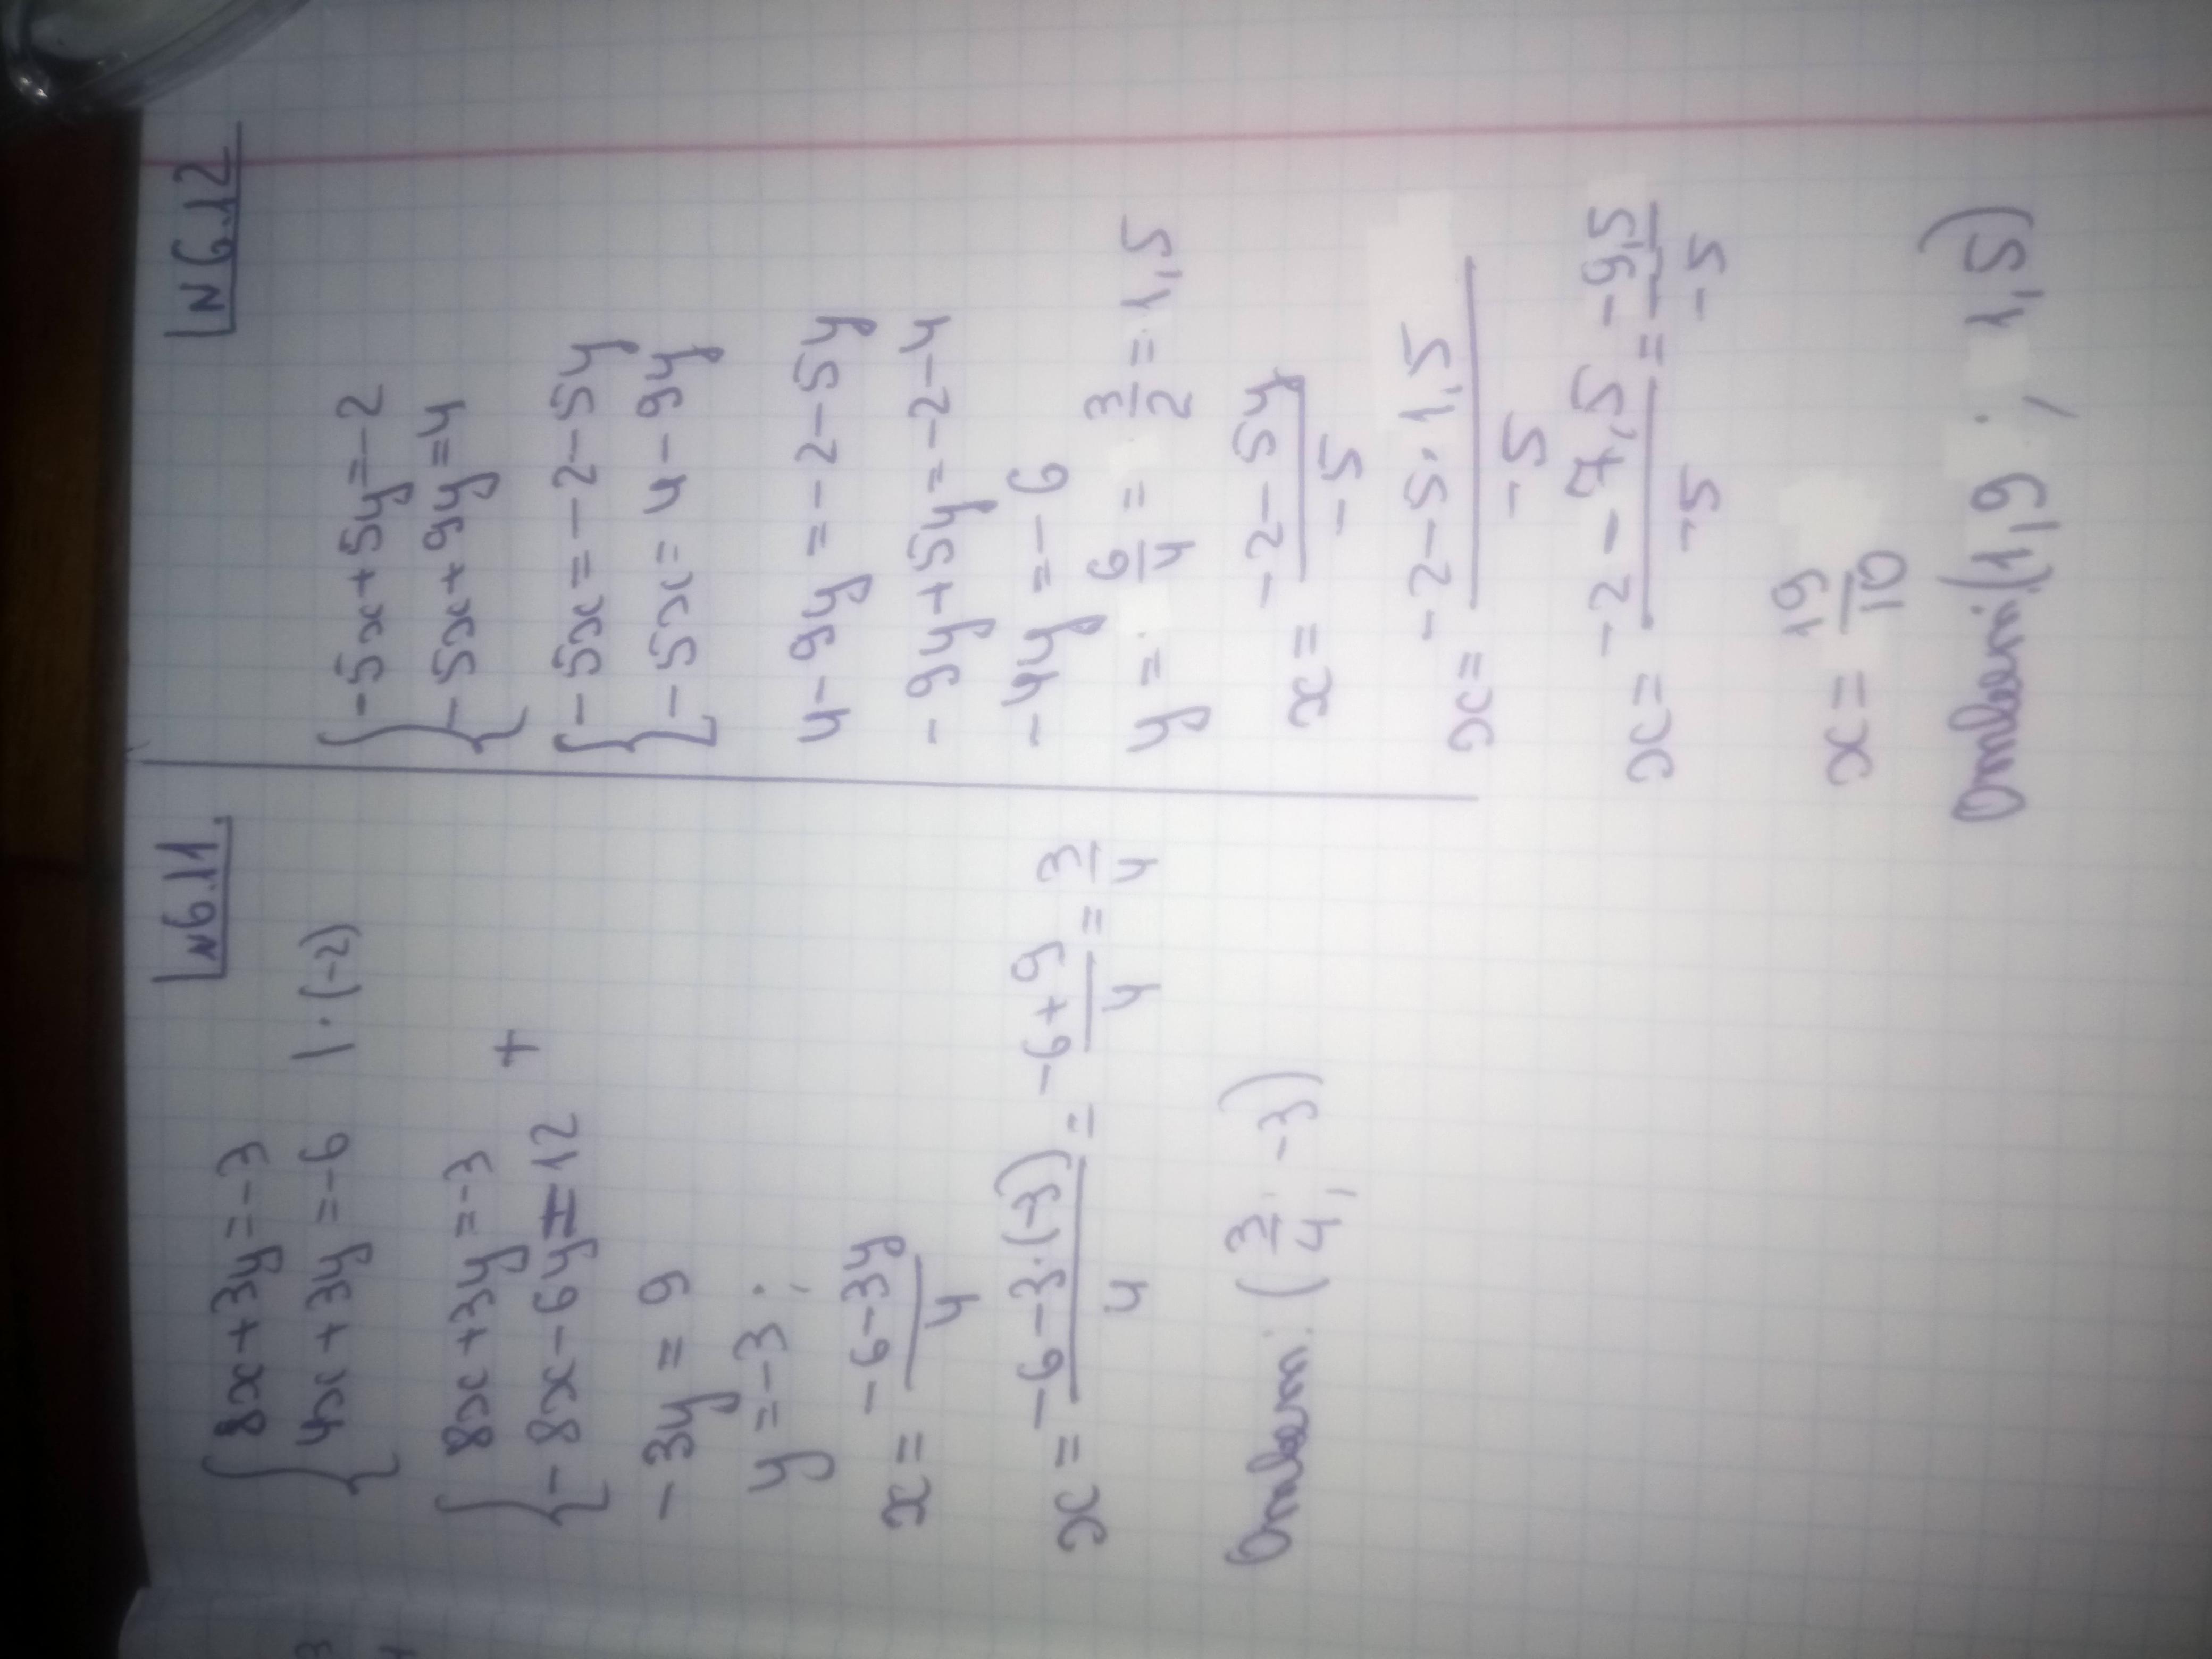 N6.11
{ 8x+3y=-3
4x+3y=-6 | · (-2)
{ 8x+3y=-3
-8x-6y=12 +
-3y=9
y=-3;
x= (-6-3y)/4
x= (-6-3·(-3))/4 = (-6+9)/4 = 3/4
Ответ: (3/4; -3)
N6.12
{ -5x+5y=-2
-5x+9y=4
{ -5x=-2-5y
-5x=4-9y
4-9y=-2-5y
-9y+5y=-2-4
-4y=-6
y= 6/4 = 3/2 = 1,5
x= (-2-5y)/-5
x= (-2-5·1,5)/-5
x= (-2-7,5)/-5 = -9,5/-5
x= 19/10
Ответ:(1,9; 1,5)